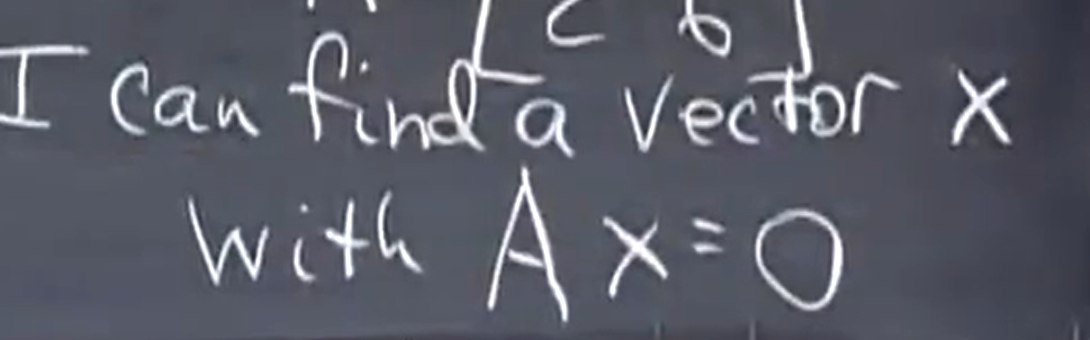 2 6
I can find a vector x
with A x = 0